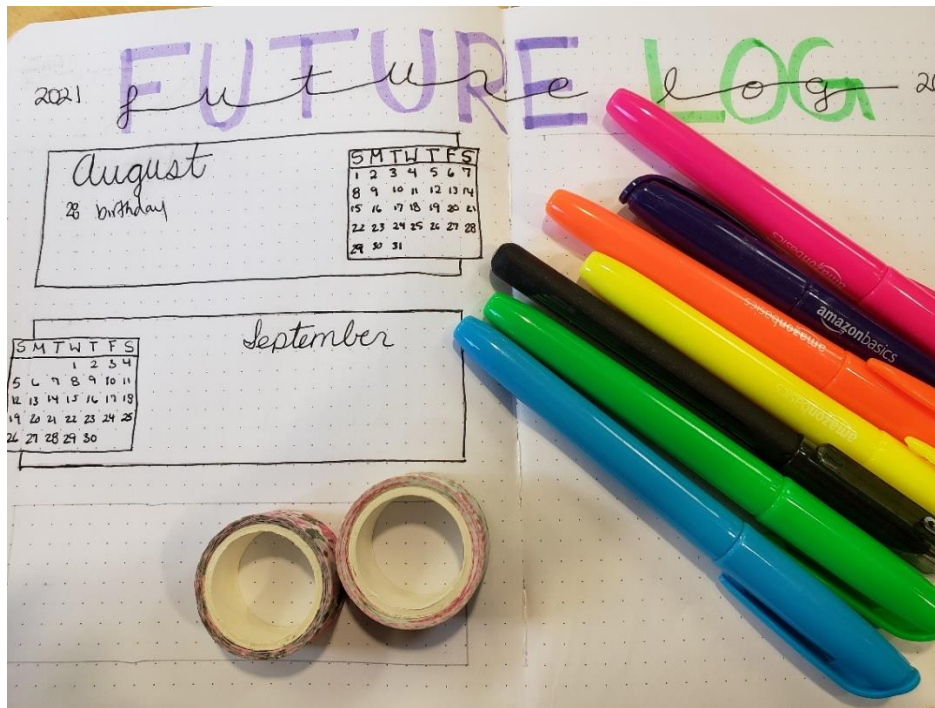 FUTURE LOG
2021 future log 20
August
28 birthday
S M T W T F S
1 2 3 4 5 6 7
8 9 10 11 12 13 14
15 16 17 18 19 20 21
22 23 24 25 26 27 28
29 30 31
September
S M T W T F S
1 2 3 4
5 6 7 8 9 10 11
12 13 14 15 16 17 18
19 20 21 22 23 24 25
26 27 28 29 30
amazonbasics
amazonbasics
amazonbasics
amazonbasics